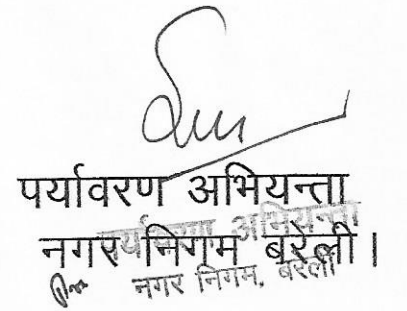 पर्यावरण अभियन्ता
नगर निगम बरेली।
पर्यावरण अभियन्ता
नगर निगम, बरेली